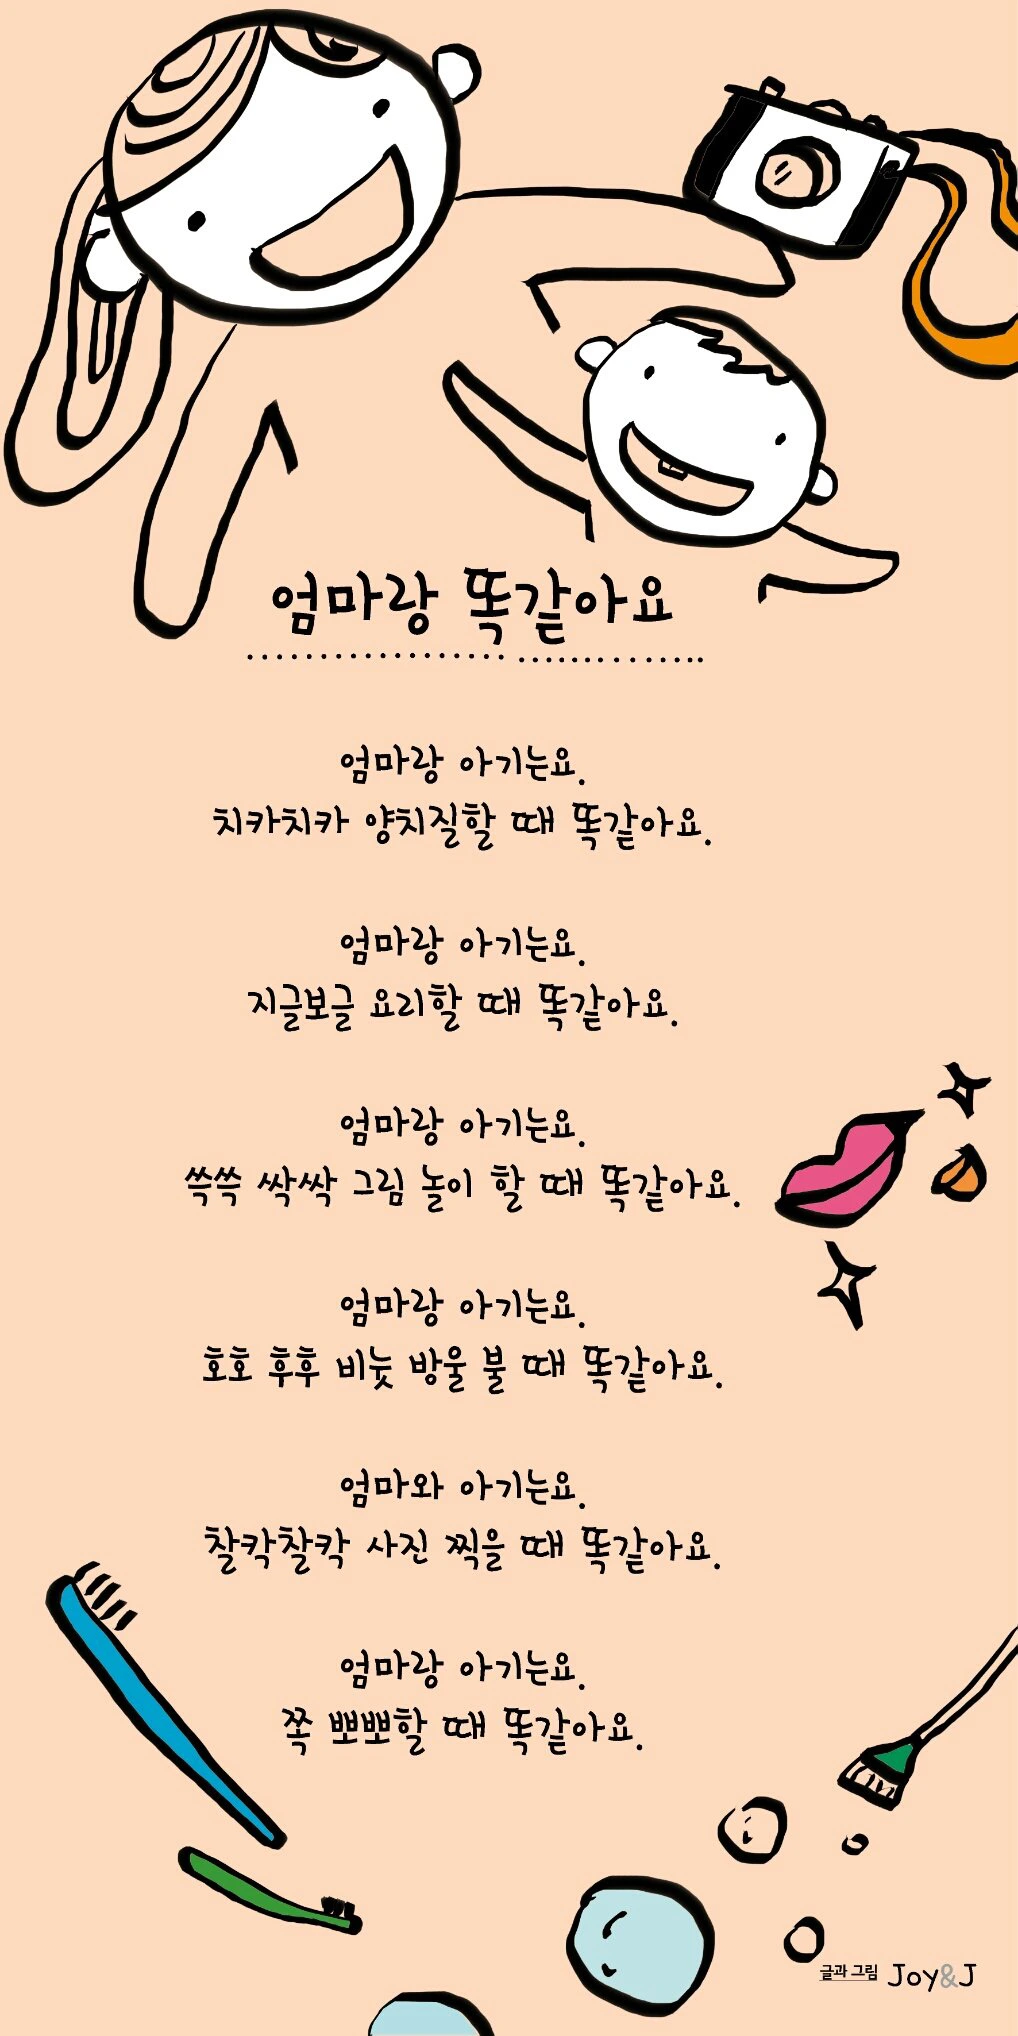 엄마랑 똑같아요
엄마랑 아기는요.
치카치카 양치질할 때 똑같아요.
엄마랑 아기는요.
지글보글 요리할 때 똑같아요.
엄마랑 아기는요.
쓱쓱 싹싹 그림 놀이 할 때 똑같아요.
엄마랑 아기는요.
호호 후후 비눗 방울 불 때 똑같아요.
엄마와 아기는요.
찰칵찰칵 사진 찍을 때 똑같아요.
엄마랑 아기는요.
쪽 뽀뽀할 때 똑같아요.
글과 그림 Joy&J